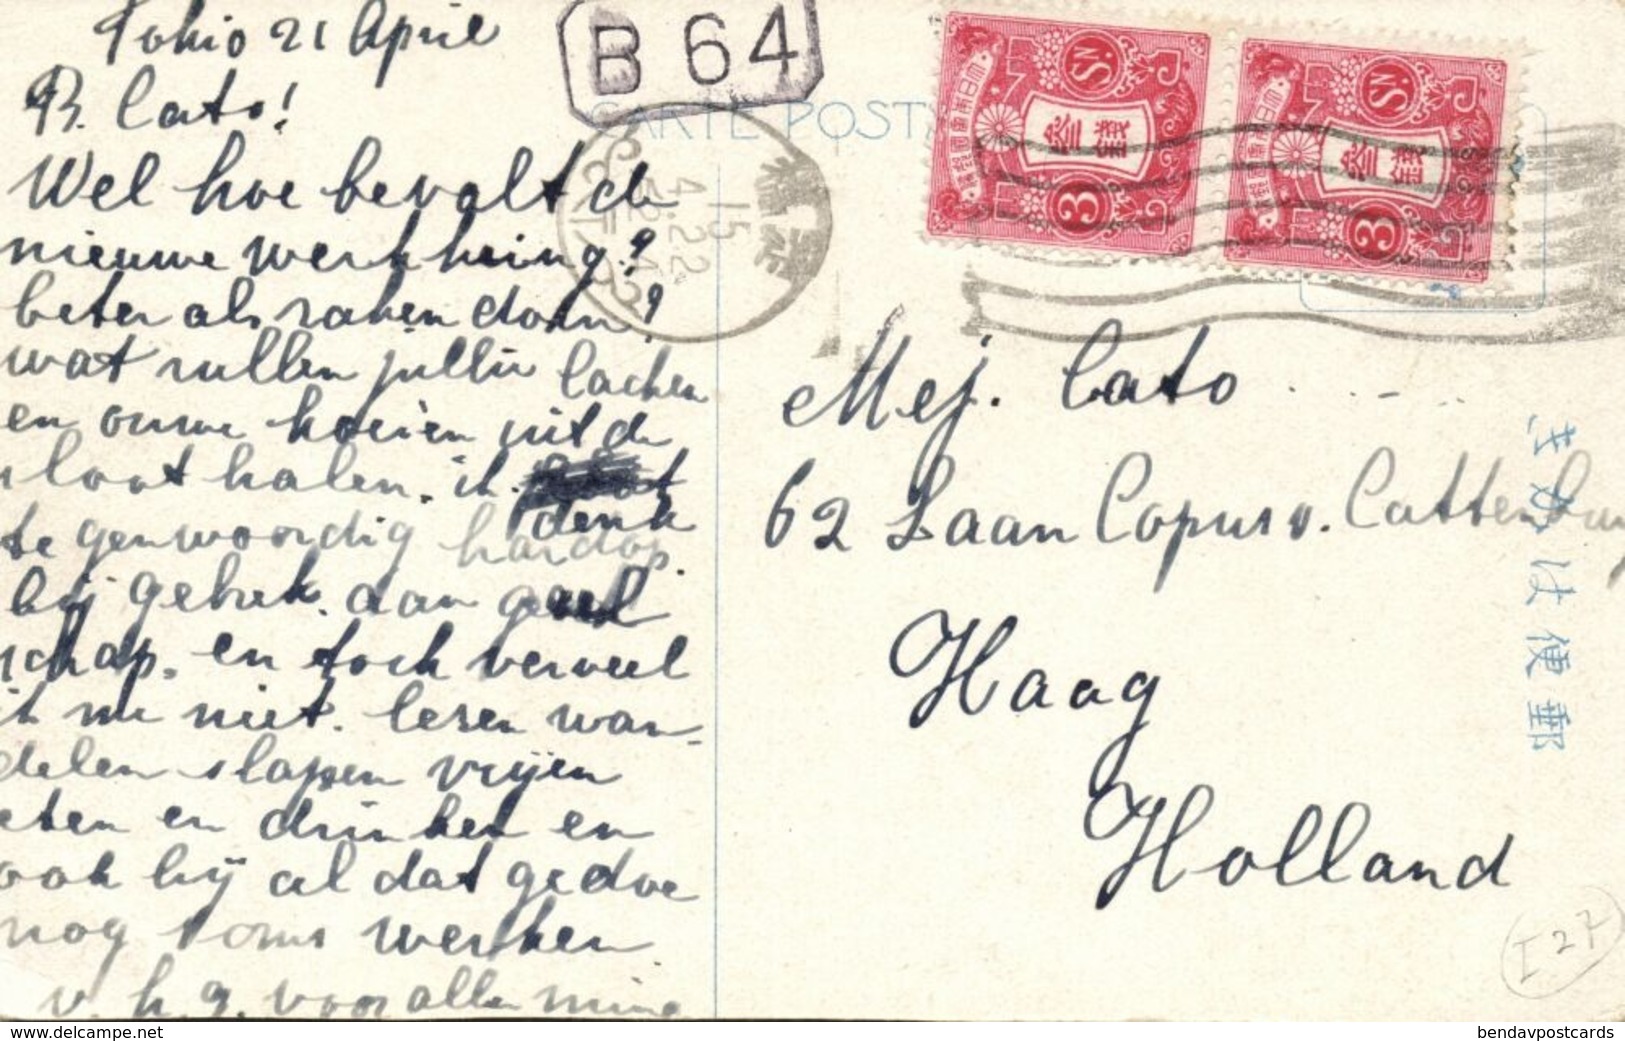 Tokio 21 April
B. Cato!
Wel hoe bevalt de
nieuwe werkkring?
beter als ramen doen?
wat zullen jullie lachen
en ouwe hoeien uit de
sloot halen. ik
tegenwoordig denk hardop
bij gebrek aan gezel
schap. en toch verveel
ik me niet. lezen wan-
delen slapen vrijen
eten en drinken en
ook bij al dat gedoe
nog soms werken
v. h. g. voor allen mine
B 64
CARTE POSTALE
大日本帝國郵便
SN
參錢
3
大日本帝國郵便
SN
參錢
3
15
4.22
Mej. Cato
62 Laan Copes v. Cattenburg
Haag
Holland
郵便はがき
I 27
bendavpostcards
www.delcampe.net